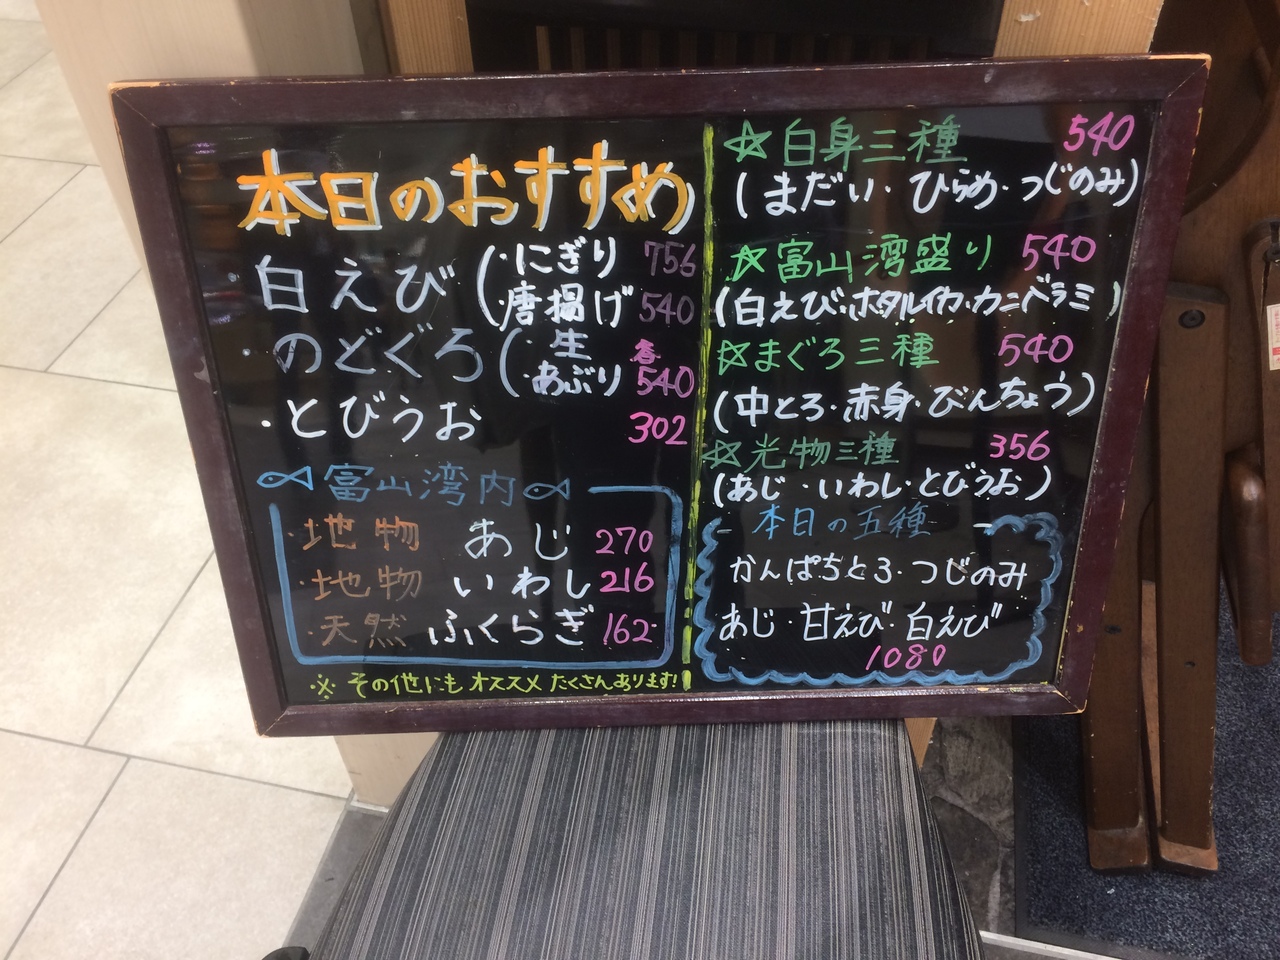 本日のおすすめ
白えび(・にぎり 756
・唐揚げ 540
・のどぐろ(・生 各
・あぶり 540
・とびうお 302
富山湾内
・地物 あじ 270
・地物 いわし 216
・天然 ふくらぎ 162
※ その他にもオススメたくさんあります!
☆白身三種 540
(まだい・ひらめ・つじのみ)
☆富山湾盛り 540
(白えび・ホタルイカ・カニベラミ)
☆まぐろ三種 540
(中とろ・赤身・びんちょう)
☆光物三種 356
(あじ・いわし・とびうお)
本日の五種
かんぱちとろ・つじのみ
あじ・甘えび・白えび
1080